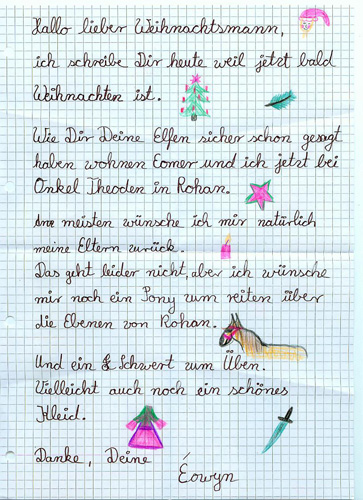 Hallo lieber Weihnachtsmann,
ich schreibe Dir heute weil jetzt bald
Weihnachten ist.
Wie Dir Deine Elfen sicher schon gesagt
haben wohnen Eomer und ich jetzt bei
Onkel Theoden in Rohan.
Am meisten wünsche ich mir natürlich
meine Eltern zurück.
Das geht leider nicht, aber ich wünsche
mir noch ein Pony zum reiten über
die Ebenen von Rohan.
Und ein Schwert zum Üben.
Vielleicht auch noch ein schönes
Kleid.
Danke, Deine
Éowyn